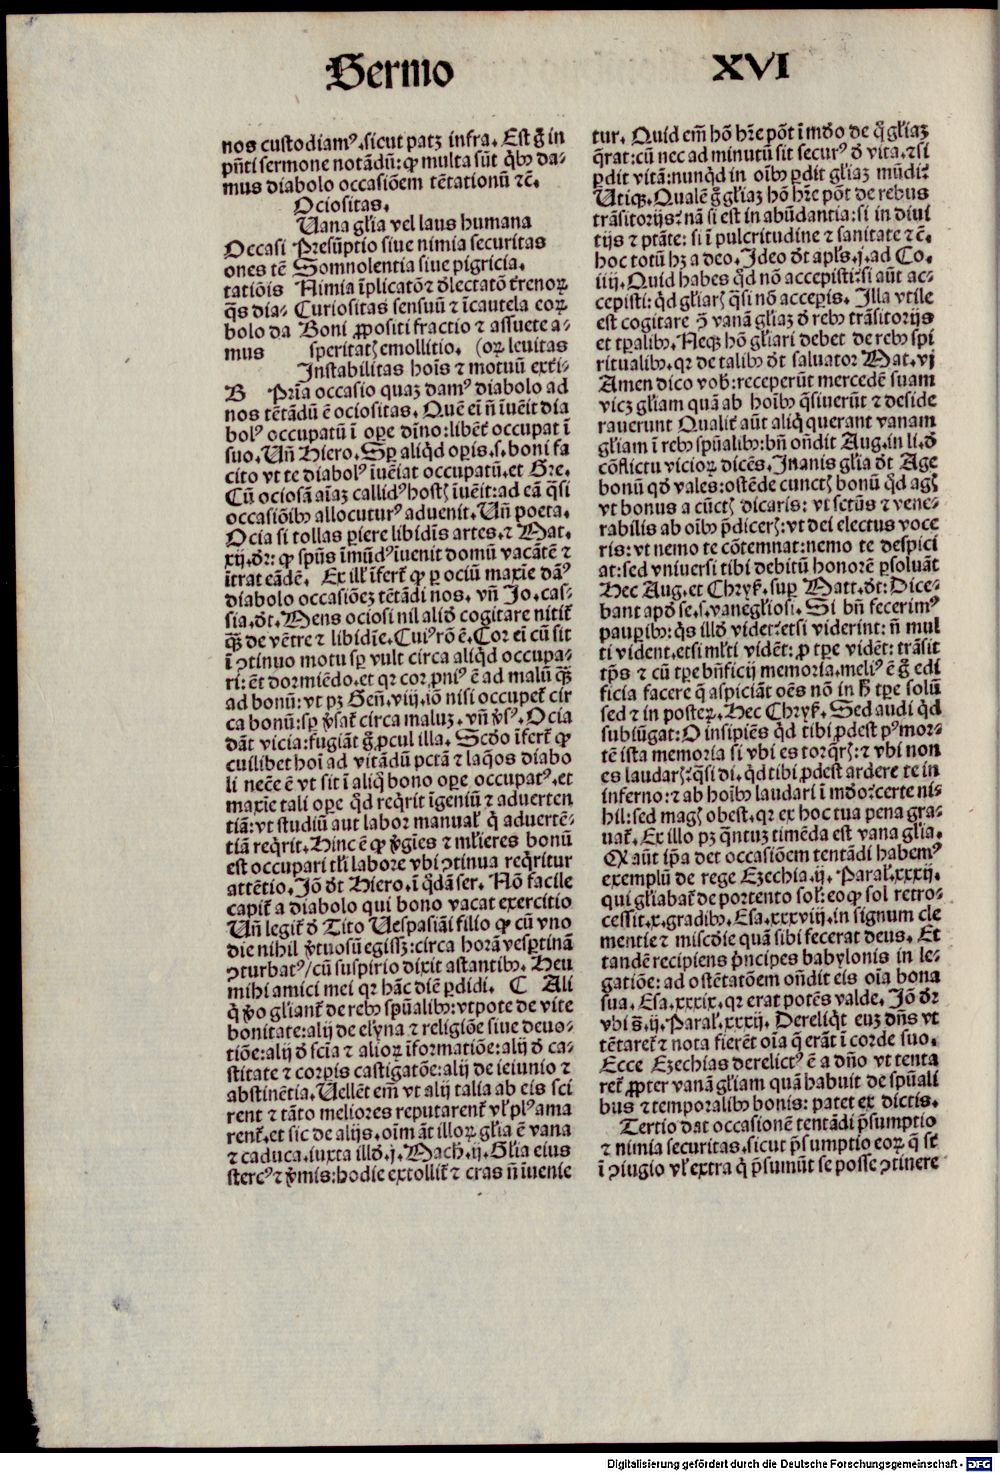 Sermo XVI
nos custodiamꝰ. sicut patꝫ infra. Est g̃ in
pñti sermone notãdũ: ꝙ multa sũt q̃bꝰ da-
mus diabolo occasiõem tẽtationũ ⁊c̃.
Ociositas.
Uana gl̃ia vel laus humana
Occasi Presũptio siue nimia securitas
ones tẽ Somnolentia siue pigricia.
tatiõis Nimia ĩplicatõ ⁊ d̃lectatõ t̃renoꝝ
q̃s dia- Curiositas sensuũ ⁊ ĩcautela eoꝝ
bolo da Boni ꝓpositi fractio ⁊ assuete a-
mus speritatꝭ emollitio. (oꝝ leuitas
Instabilitas hoĩs ⁊ motuũ exti-
B Prĩa occasio quaꝫ damꝰ diabolo ad
nos tẽtãdũ ẽ ociositas. Quẽ eĩ ñ ĩueĩt dia
bolꝰ occupatũ ĩ oꝑe dĩno: libẽt̃ occupat ĩ
suo. Uñ Hiero. Sꝑ aliq̃d oꝑis. s. boni fa
cito vt te diabolꝰ ĩueĩat occupatũ. et Gre.
Cũ ociosã aĩaꝫ callidꝰ hostꝭ ĩueĩt: ad eã q̃si
occasiõibꝰ allocuturꝰ aduenit. Uñ poeta.
Ocia si tollas ꝑiere libidĩs artes. ⁊ Mat.
xij. dr̃: ꝙ spũs ĩmũdꝰ ĩuenit domũ vacãtẽ ⁊
ĩtrat eãdẽ. Ex ill̃ ĩfert̃ ꝙ ꝑ ociũ maxĩe dãꝰ
diabolo occasiõeꝫ tẽtãdi nos. vñ Jo. cas-
sia. d̃t. Mens ociosi nil aliud cogitare nitit̃
q̃ꝫ de vẽtre ⁊ libidĩe. Cuiꝰ rõ ẽ. Cor eĩ cũ sit
ĩ ꝯtinuo motu sꝑ vult circa aliq̃d occupa-
ri: ẽt dormiẽdo. et qꝛ coꝛ ꝓniꝰ ẽ ad malũ q̃ꝫ
ad bonũ: vt pꝫ Geñ. viij. iõ nisi occupet̃ cir
ca bonũ: sꝑ v̾sat̃ circa maluꝫ. vñ v̾sꝰ. Ocia
dãt vicia: fugiãt g̃ ꝓcul illa. Scd̃o ĩfert̃ ꝙ
cuilibet hoĩ ad vitãdũ pctã ⁊ laq̃os diabo
li necẽe ẽ vt sit ĩ aliq̃ bono oꝑe occupatꝰ. et
maxĩe tali oꝑe q̃d req̃rit ĩgeniũ ⁊ aduerten
tiã: vt studiũ aut labor manual̃ q̃ aduertẽ-
tiã req̃rit. Hinc ẽ ꝙ v̾gĩes ⁊ ml̃ieres bonũ
est occupari tl̃i labore vbi ꝯtinua req̃ritur
attẽtio. Jõ d̃t Hiero. ĩ q̃dã ser. Nõ facile
capit̃ a diabolo qui bono vacat exercitio
Uñ legit̃ d̃ Tito Uespasiãi filio ꝙ cũ vno
die nihil v̾tuosũ egissꝫ: circa horã vesꝑtinã
ꝯturbatꝰ/ cũ suspirio dixit astantibꝰ. Heu
mihi amici mei qꝛ hãc diẽ ꝑdidi. C Ali
q̃ vo gl̃iant̃ de rebꝰ spũalibꝰ: vtpote de vite
bonitate: alij de elẏna ⁊ religiõe siue deuo-
tiõe: alij d̃ scĩa ⁊ alioꝝ ĩformatiõe: alij d̃ ca-
stitate ⁊ corpis castigatõe: alij de ieiunio ⁊
abstinẽtia. Uellẽt em̃ vt alij talia ab eis sci
rent ⁊ tãto meliores reputarent̃ vl̃ plꝰ ama
rent̃. et sic de alijs. oĩm aũt illoꝝ gl̃ia ẽ vana
⁊ caduca. iuxta illđ. j. Mach̃. ij. Gl̃ia eius
stercꝰ ⁊ v̾mis: hodie extollit̃ ⁊ cras ñ ĩuenie
tur. Quid em̃ hõ hr̃e põt ĩ mũdo de q̃ gl̃iaꝫ
q̃rat: cũ nec ad minutũ sit securꝰ d̃ vita. ⁊ si
ꝑdit vitã: nunq̃d in oĩbꝰ ꝑdit gl̃iaꝫ mũdi?
Utiqꝫ. Qualẽ g̃ gl̃iaꝫ hõ hr̃e põt de rebus
trãsitorijs? nã si est in abũdantia: si in diui
tijs ⁊ ptãte: si ĩ pulcritudine ⁊ sanitate ⁊c̃.
hoc totũ hꝫ a deo. Jdeo d̃t apl̃s. j. ad Co.
iiij. Quid habes q̃d nõ accepisti: si aũt ac-
cepisti: q̃d gl̃iarꝭ q̃si nõ acceꝑis. Illa vtile
est cogitare ꝯ̃ vanã gl̃iaꝫ d̃ rebꝰ trãsitorijs
et tꝑalibꝰ. Neqꝫ hõ gl̃iari debet de rebꝰ spi
ritualibꝰ. qꝛ de talibꝰ d̃t saluator Mat. vj
Amen dico vob̃: receperũt mercedẽ suam
vicꝫ gl̃iam quã ab hoĩbꝰ q̃siuerũt ⁊ deside
rauerunt Qualit̃ aũt aliq̃ querant vanam
gl̃iam ĩ rebꝰ spũalibꝰ: bñ oñdit Aug. in li. d̃
cõflictu vicioꝝ dicẽs. Jnanis gl̃ia d̃t Age
bonũ qd̃ vales: ostẽde cunctꝭ bonũ q̃d agꝭ
vt bonus a cũctꝭ dicaris: vt sctũs ⁊ vene-
rabilis ab oĩbꝰ p̃dicerꝭ: vt dei electus voce
ris: vt nemo te cõtemnat: nemo te despici
at: sed vniuersi tibi debitũ honorẽ ꝑsoluãt
Hec Aug. et Chryſ. suꝑ Matt. d̃t: Dice-
bant apđ se. s. vanegl̃iosi. Si bñ fecerimꝰ
pauꝑibꝰ: q̃s illđ videt? etsi viderint: ñ mul
ti vident. etsi ml̃ti vidẽt: ꝓ tꝑe vidẽt: trãsit
tp̃s ⁊ cũ tꝑe bñficij memoria. meliꝰ ẽ g̃ edi
ficia facere q̃ aspiciãt oẽs nõ in h̃ tꝑe solũ
sed ⁊ in posteꝝ. Hec Chryſ. Sed audi q̃d
subiũgat: O insipiẽs q̃d tibi ꝓdest pꝰ mor-
tẽ ista memoria si vbi es torq̃rꝭ: ⁊ vbi non
es laudarꝭ? q̃si di. q̃d tibi ꝓdest ardere te in
inferno: ⁊ ab hoĩbꝰ laudari ĩ mũdo? certe ni-
hil: sed magꝭ obest. qꝛ ex hoc tua pena gra-
uat̃. Ex illo pꝫ q̃ntuꝫ timẽda est vana gl̃ia.
Q aũt ip̃a det occasiõem tentãdi habemꝰ
exemplũ de rege Ezechia. ij. Paral̃. xxxij.
qui gl̃iabat̃ de portento sol̃: eo ꝙ sol retro-
cessit. x. gradibꝰ. Esa. xxxviij. in signum cle
mentie ⁊ miscd̃ie quã sibi fecerat deus. Et
tandẽ recipiens p̃ncipes babylonis in le-
gatiõe: ad ostẽtatõem oñdit eis oĩa bona
sua. Esa. xxxix. qꝛ erat potẽs valde. Jõ dr̃
vbi s̃. ij. Paral̃. xxxij. Dereliq̃t euꝫ dñs vt
tẽtaret̃ ⁊ nota fierẽt oĩa q̃ erãt ĩ corde suo.
Ecce Ezechias derelictꝰ ẽ a dño vt tenta
ret̃ ꝓpter vanã gl̃iam quã habuit de spũali
bus ⁊ temporalibꝰ bonis: patet ex dictis.
Tertio dat occasionẽ tentãdi p̃sumptio
⁊ nimia securitas. sicut p̃sumptio eoꝝ q̃ se
ĩ ꝯiugio vl̃ extra q̃ p̃sumũt se posse ꝯtinere
Digitalisierung gefördert durch die Deutsche Forschungsgemeinschaft - DFG